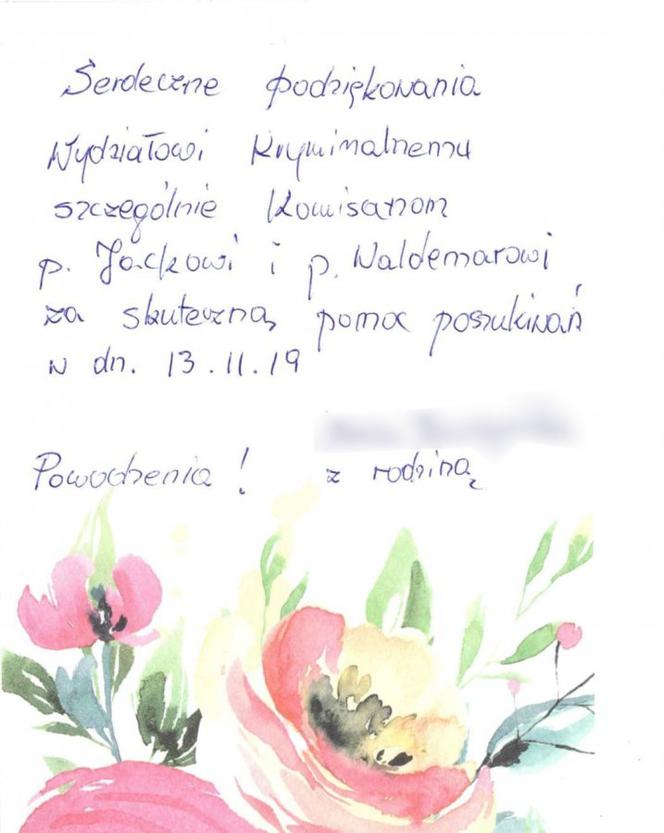 Serdeczne podziękowania
Wydziałowi Kryminalnemu
szczególnie Komisarzom
p. Jackowi i p. Waldemarowi
za skuteczną pomoc poszukiwań
w dn. 13.11.19
Powodzenia! z rodziną